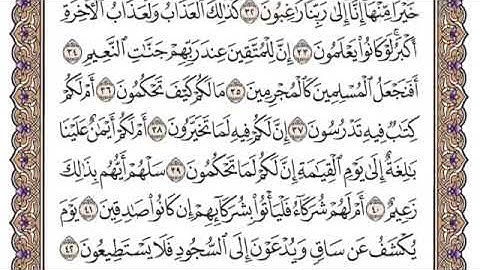 خَيْرًا مِّنْهَا إِنَّا إِلَىٰ رَبِّنَا رَاغِبُونَ ٣٢ كَذَٰلِكَ الْعَذَابُ وَلَعَذَابُ الْآخِرَةِ
أَكْبَرُ لَوْ كَانُوا يَعْلَمُونَ ٣٣ إِنَّ لِلْمُتَّقِينَ عِندَ رَبِّهِمْ جَنَّاتِ النَّعِيمِ ٣٤
أَفَنَجْعَلُ الْمُسْلِمِينَ كَالْمُجْرِمِينَ ٣٥ مَا لَكُمْ كَيْفَ تَحْكُمُونَ ٣٦ أَمْ لَكُمْ
كِتَابٌ فِيهِ تَدْرُسُونَ ٣٧ إِنَّ لَكُمْ فِيهِ لَمَا تَخَيَّرُونَ ٣٨ أَمْ لَكُمْ أَيْمَانٌ عَلَيْنَا
بَالِغَةٌ إِلَىٰ يَوْمِ الْقِيَامَةِ إِنَّ لَكُمْ لَمَا تَحْكُمُونَ ٣٩ سَلْهُمْ أَيُّهُم بِذَٰلِكَ
زَعِيمٌ ٤٠ أَمْ لَهُمْ شُرَكَاءُ فَلْيَأْتُوا بِشُرَكَائِهِمْ إِن كَانُوا صَادِقِينَ ٤١ يَوْمَ
يُكْشَفُ عَن سَاقٍ وَيُدْعَوْنَ إِلَى السُّجُودِ فَلَا يَسْتَطِيعُونَ ٤٢